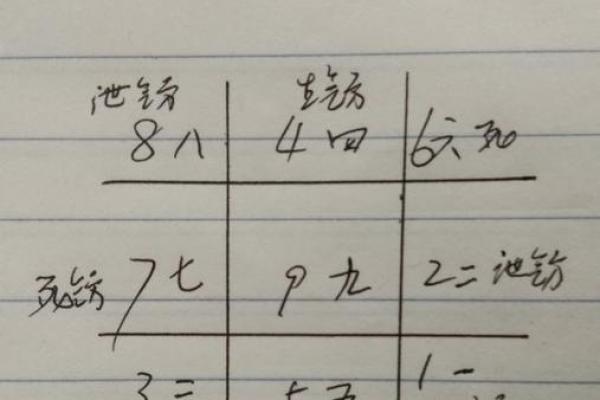 泄气方 生气方
8八 4四 6六 死
死气方 7七 9九 2二 泄气方
1一